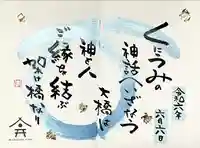 くにつみの
神話へいざなう
大橋は
神と人
ご縁を結ぶ
架け橋なり
令和六年
六月六日